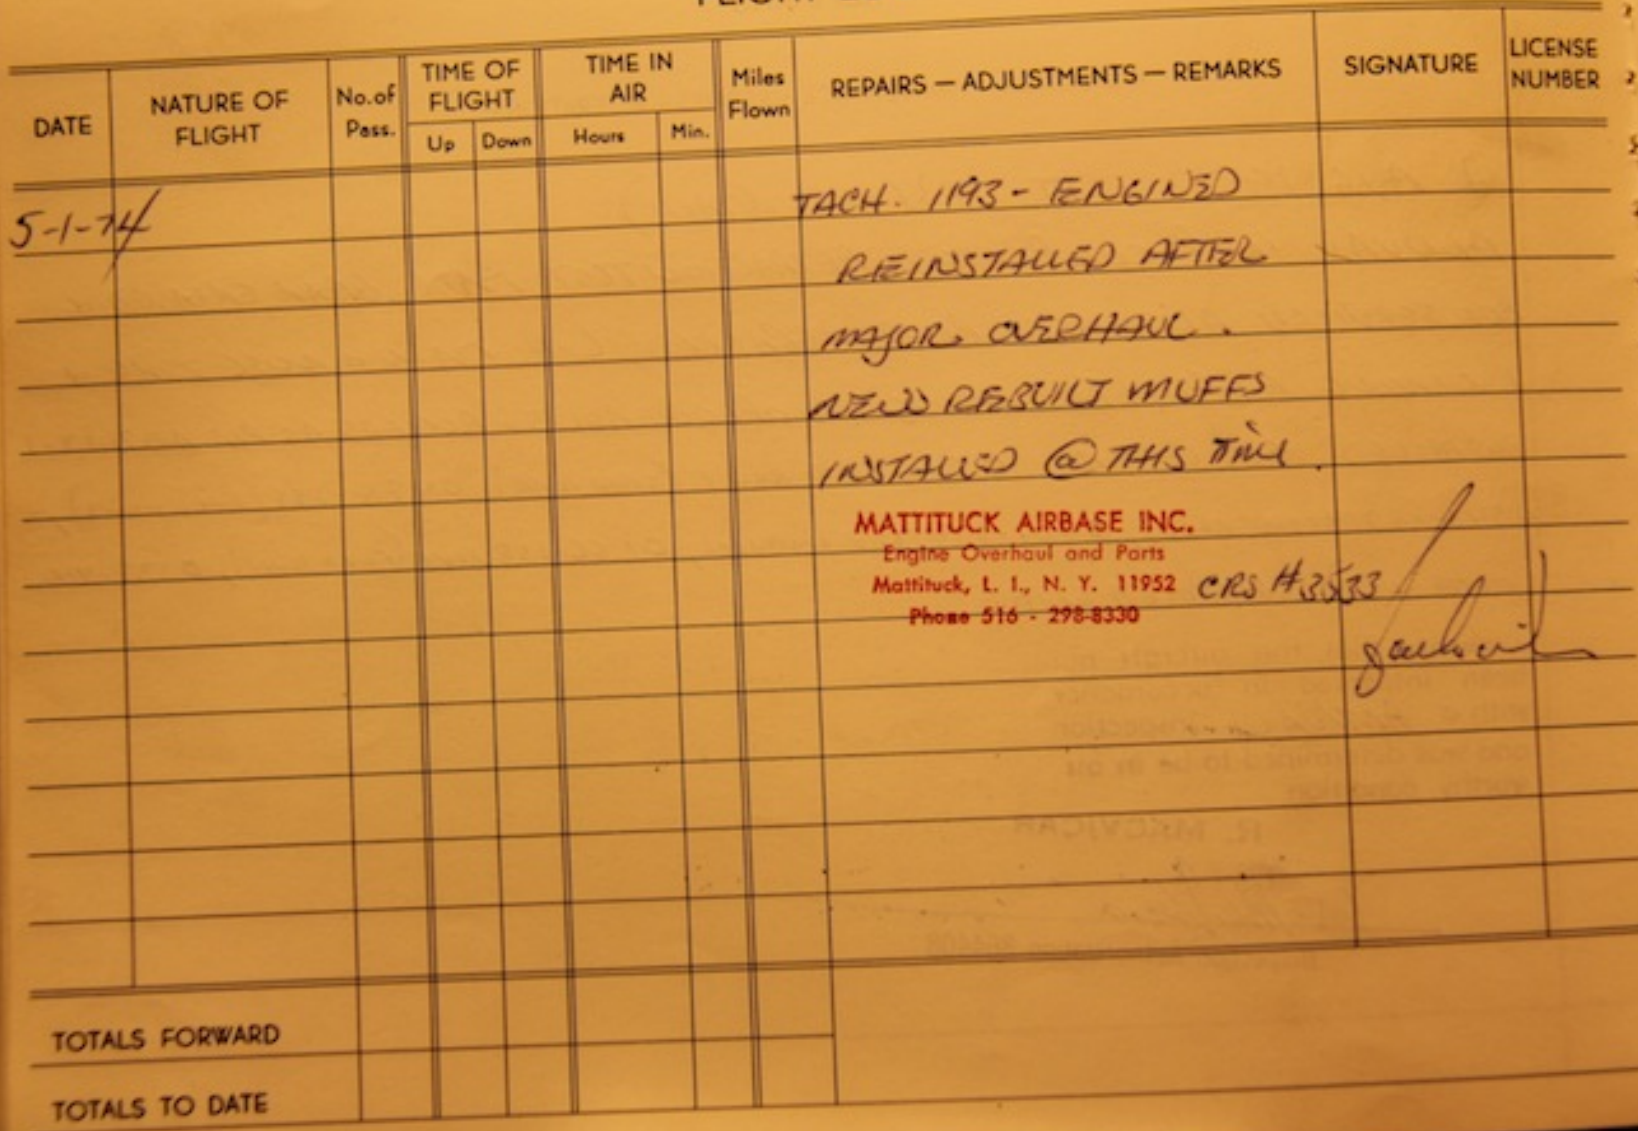 DATE NATURE OF FLIGHT No.of Pass. TIME OF FLIGHT Up Down TIME IN AIR Hours Min. Miles Flown REPAIRS — ADJUSTMENTS — REMARKS SIGNATURE LICENSE NUMBER
5-1-74
TACH. 1193 - ENGINED
REINSTALLED AFTER
MAJOR OVERHAUL.
NEW REBUILT MUFFS
INSTALLED @ THIS TIME.
MATTITUCK AIRBASE INC.
Engine Overhaul and Parts
Mattituck, L. I., N. Y. 11952 CRS #3533
Phone 516 - 298-8330
TOTALS FORWARD
TOTALS TO DATE